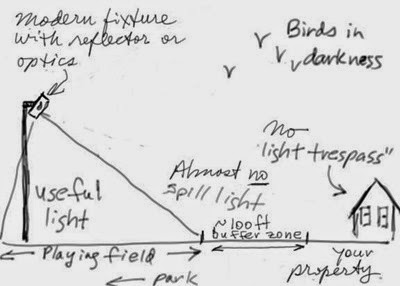 modern fixture
with reflector or
optics
Birds in
darkness
No
"light trespass"
Almost no
spill light
useful
light
~100ft
buffer zone
Playing field
park
your
property